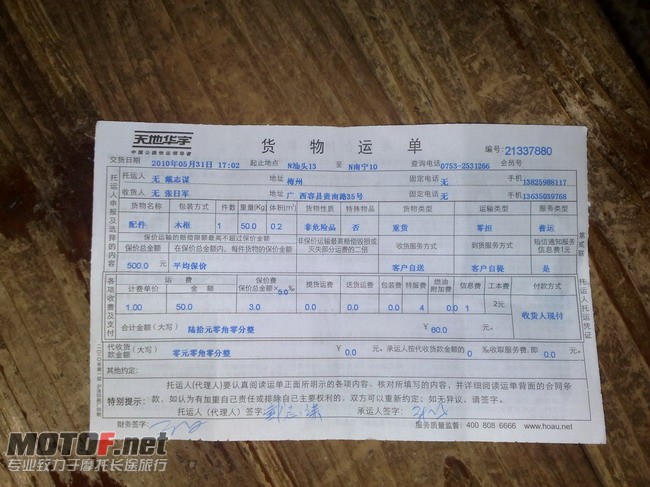 天地华宇
中国公路物流领导者
货物运单
编号:21337880
交货日期 2010年05月31日 17:02 起止地点 N汕头13 至 N南宁10 查询电话 0753-2531266 会员号
托运人 无 戴志谋 地址 梅州 固定电话 无 手机 13825988117
收货人 无 张日军 地址 广西容县贵南路35号 固定电话 无 手机
托运人申报及选择的内容
货物名称 包装方式 件数 重量(Kg) 体积(m³) 货物性质 特殊物品 货物类型 运输类型 服务类型
配件 木柜 1 50.0 0.2 非危险品 否 重货 零担 普运
保价运输的赔偿限额最高不超过保价金额 非保价运输最高赔偿毁损或灭失部分运费的二倍 收货服务方式 到货服务方式 短信通知服务信息费1元
保价总金额 在保价总金额内,每件货物的保价金额
500.0 元 平均保价 客户自送 客户自提 是
各项收费及支付
运费 保价费 提货运费 送货运费 包装费 特服费 燃油附加费 信息费 工本费 付款方式
计费单价 金额 保价总金额×5.0‰
1.00 50.0 3.0 0.0 0.0 0.0 4 0.0 1 2元 收货人现付
合计金额(大写) 陆拾元零角零分整 ¥ 60.0 元
代收货款金额(大写) 零元零角零分整 ¥ 0.0 元。承运人按代收货款金额的 0 ‰收取服务费,即 0.0 元。
其他约定:
特别提示:
托运人(代理人)要认真阅读运单正面所明示的各项内容,核对所填写的内容,并详细阅读运单背面的合同条
款,如认为有加重自己责任或排除自己主要权利的,双方可以重新约定;如无异议,请签字。
托运人(代理人)签字: 承运人签字:
财务签字: 服务质量监督:400 808 6666 www.hoau.net
第贰联
托运人托运凭证
MOTOF.net
专业致力于摩托长途旅行